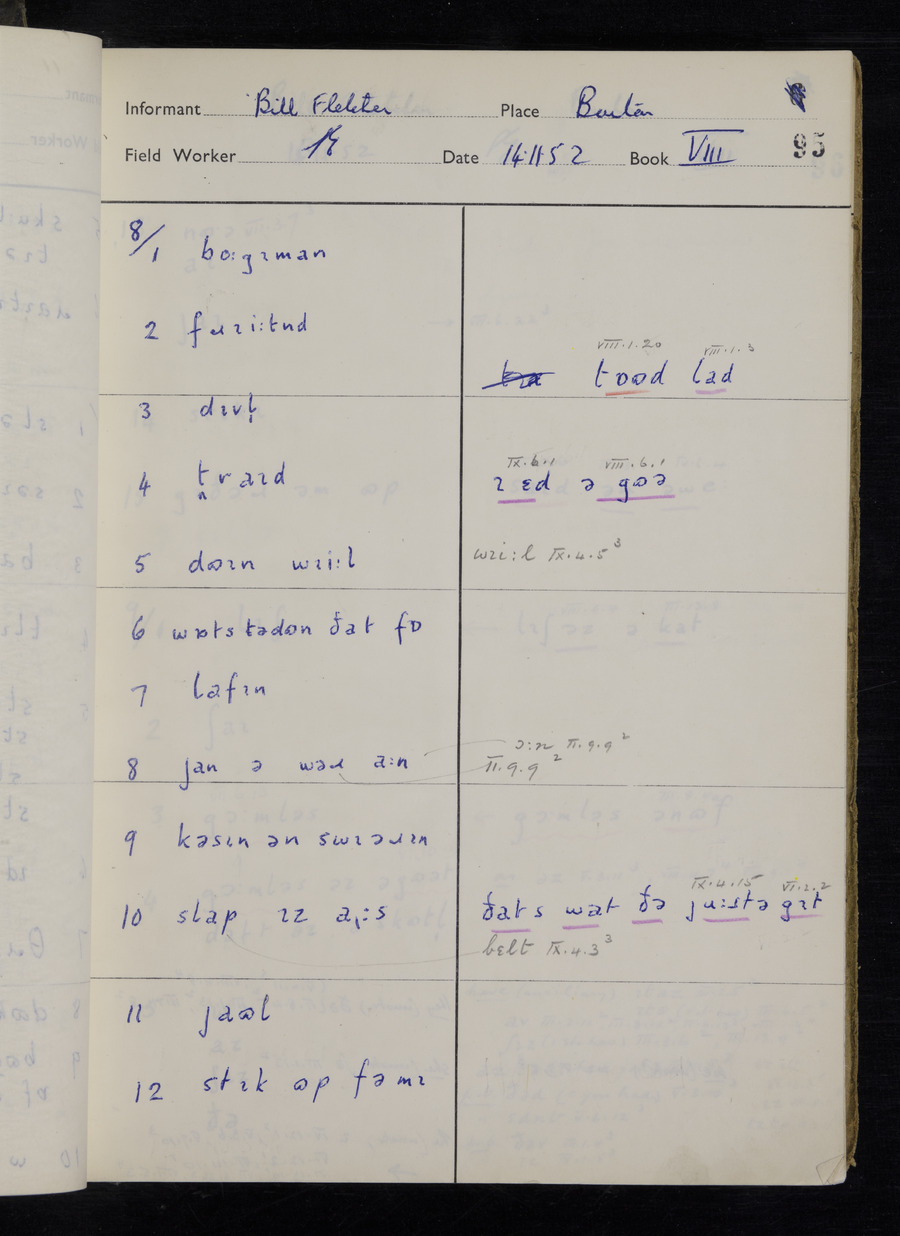 Informant Bill Fletcher Place Buxton
Field Worker Date 14.11.52 Book VIII 95
8/1 bo:gɪman
2 fɹɪi:tnd
t̶ɪ̶a̶ tʊʊd lad
VIII.1.20 VIII.1.3
3 dɪvl̩
4 t̪ɹaɪd
ɪɛd ə gʊə
IX.6.1 VIII.6.1
5 dʊɪn wɪi:l
wɪi:l IX.4.5³
6 wɒts tədʊn ðat fɒ
7 lafɪn
8 jan ə wəɹ a:n
ɔ:n II.9.9²
II.9.9²
9 kəsɪn ən swɪəɹɪn
10 slap ɪz a:s
ðats wat ðə ju:stə gɪt
IX.4.15 VI.2.2
belt IX.4.3³
11 jaʊl
12 stɪk ʊp fəmɪ